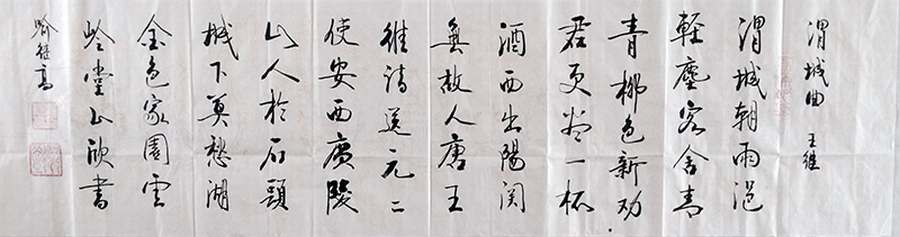 渭城曲 王維
渭城朝雨浥
輕塵客舍青
青柳色新劝
君更尽一杯
酒西出陽関
無故人唐王
維詩送元二
使安西廣陵
山人於石頭
城下莫愁湖
金色家園雲
堂山欣書
喻继高